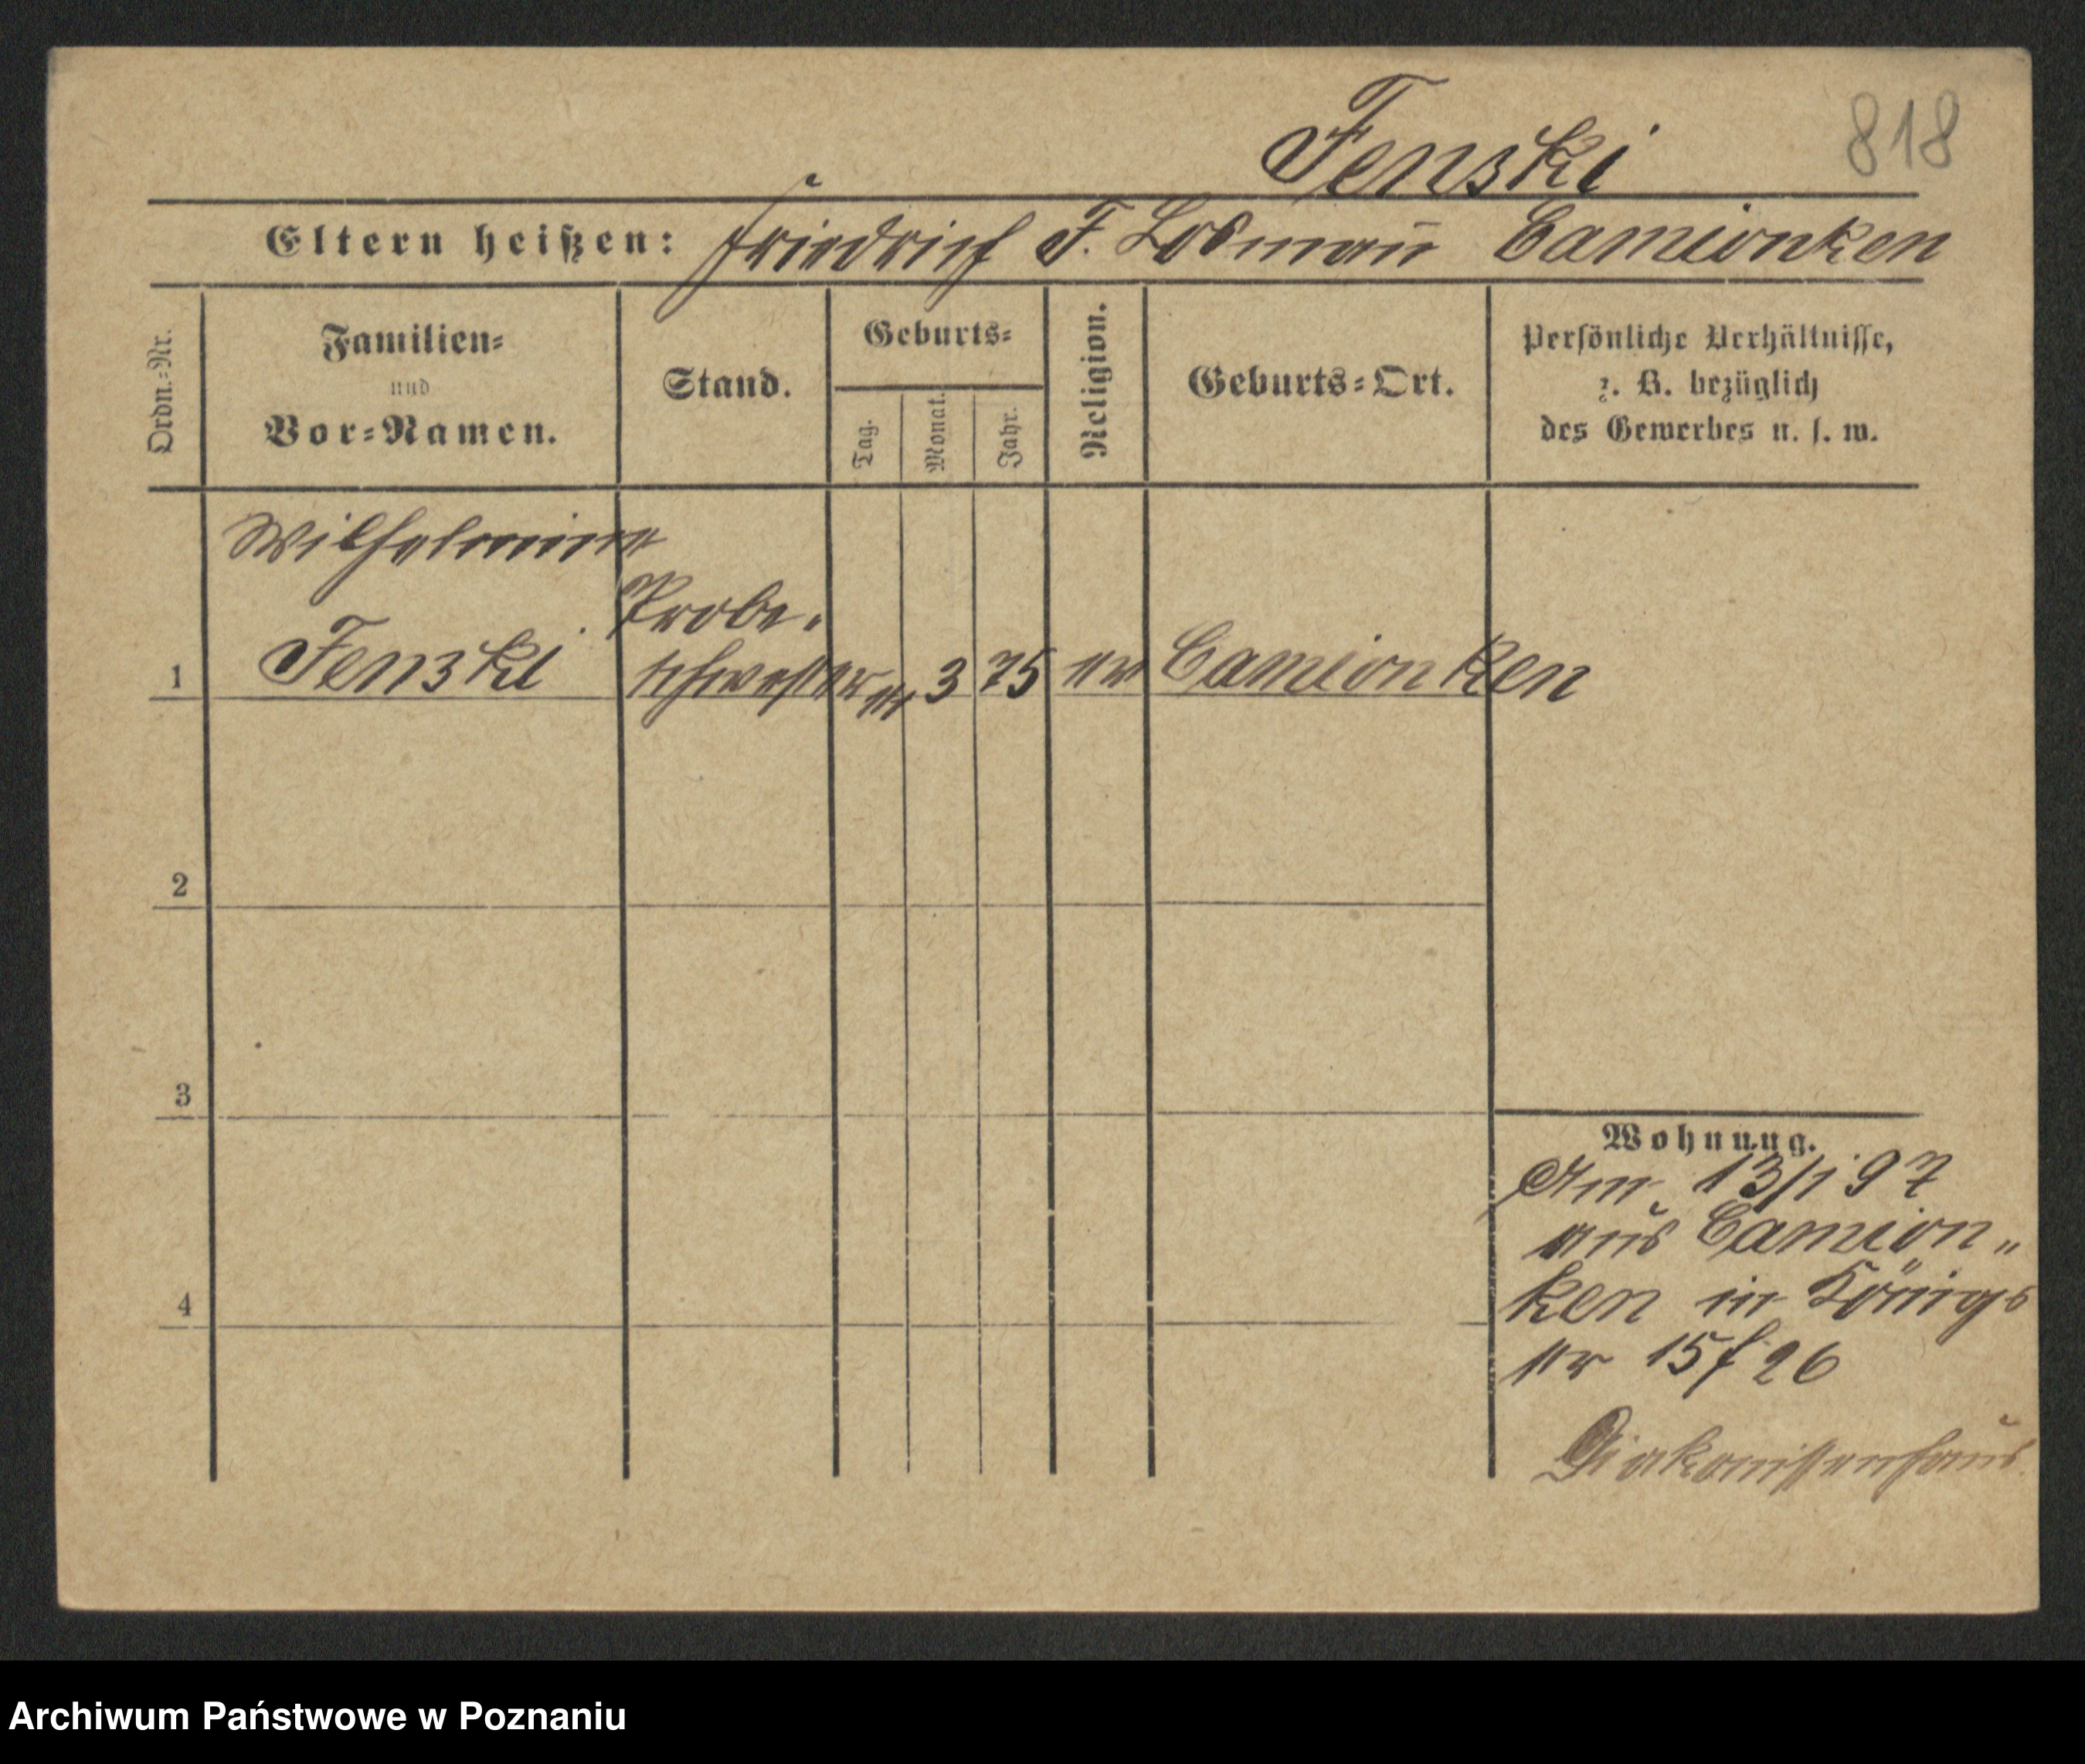 818
Fenski
Eltern heißen: Friedrich F. Losman̄ Camionken
Ordn.=Nr.
Familien=
und
Vor=Namen.
Stand.
Geburts=
Tag.
Monat.
Jahr.
Religion.
Geburts=Ort.
Persönliche Verhältnisse,
z. B. bezüglich
des Gewerbes u. s. w.
Wilhelmine
Probe=
1 Fenski schwester 3 75 ev Camionken
2
3
4
Wohnung.
Am 13/1 97
aus Camion„
ken in Königs
Diakonissenhaus.
Archiwum Państwowe w Poznaniu